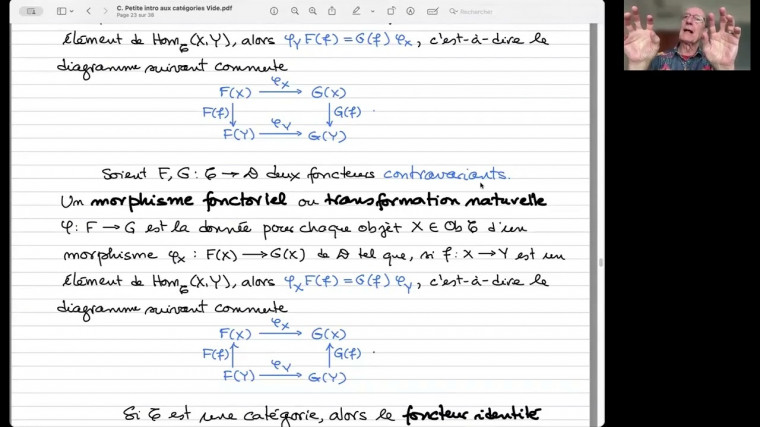 C. Petite intro aux catégories Vide.pdf
Page 23 sur 36
Rechercher
élément de Hom_𝒞(X,Y), alors φ_Y F(f) = G(f) φ_X, c'est-à-dire le
diagramme suivant commute
F(X) —φ_X→ G(X)
F(f) ↓ ↓ G(f)
F(Y) —φ_Y→ G(Y)
Soient F, G : 𝒞 → 𝒟 deux foncteurs contravariants.
Un morphisme fonctoriel ou transformation naturelle
φ : F → G est la donnée pour chaque objet X ∈ Ob 𝒞 d'un
morphisme φ_X : F(X) → G(X) de 𝒟 tel que, si f : X → Y est un
élément de Hom_𝒞(X,Y), alors φ_X F(f) = G(f) φ_Y, c'est-à-dire le
diagramme suivant commute
F(X) —φ_X→ G(X)
F(f) ↑ ↑ G(f)
F(Y) —φ_Y→ G(Y)
Si 𝒞 est une catégorie, alors le foncteur identité